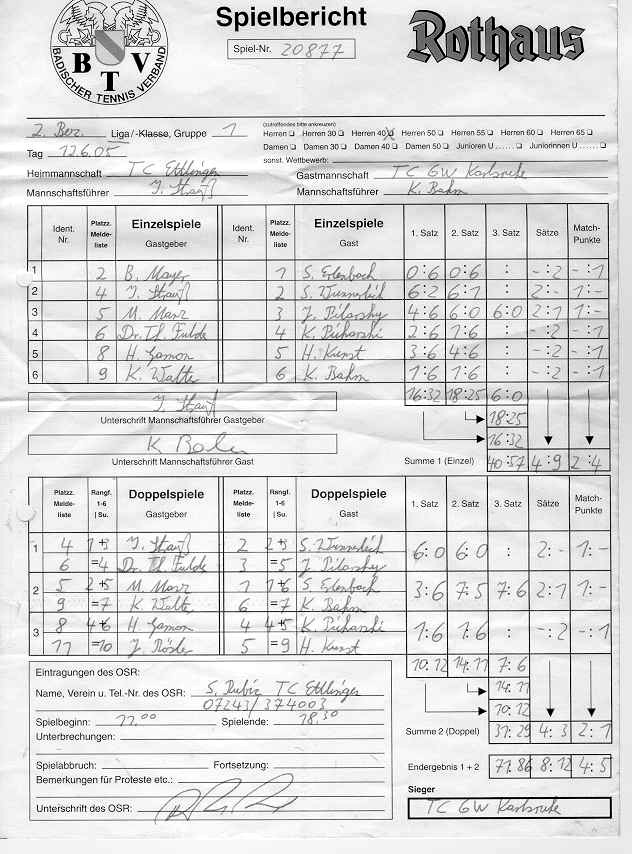 Spielbericht
Spiel-Nr. 20877
Rothaus
BTV
BADISCHER TENNIS VERBAND
(zutreffendes bitte ankreuzen)
2. Bez. Liga/-Klasse, Gruppe 1
Herren Herren 30 Herren 40 X Herren 50 Herren 55 Herren 60 Herren 65
Damen Damen 30 Damen 40 Damen 50 Junioren U ...... Juniorinnen U ......
Tag 12.6.05
sonst. Wettbewerb:
Heimmannschaft TC Ettlingen Gastmannschaft TC GW Karlsruhe
Mannschaftsführer Mannschaftsführer K. Bahm
Ident. Nr. Platzz. Meldeliste Einzelspiele Gastgeber Ident. Nr. Platzz. Meldeliste Einzelspiele Gast 1. Satz 2. Satz 3. Satz Sätze Match-Punkte
1 2 B. Mayer 1 S. Erlenbach 0:6 0:6 : -:2 -:1
2 4 2 6:2 6:1 : 2:- 1:-
3 5 M. Marz 3 J. Pilarsky 4:6 6:0 6:0 2:1 1:-
4 6 Dr. Th. Fulde 4 K. Picharski 2:6 1:6 : -:2 -:1
5 8 H. Gamon 5 H. Kunst 3:6 4:6 : -:2 -:1
6 9 K. Walte 6 K. Bahm 1:6 1:6 : -:2 -:1
16:32 18:25 6:0
Unterschrift Mannschaftsführer Gastgeber
18:25
16:32
Unterschrift Mannschaftsführer Gast
Summe 1 (Einzel) 40:57 4:9 2:4
Platzz. Meldeliste Rangf. 1-6 | Su. Doppelspiele Gastgeber Platzz. Meldeliste Rangf. 1-6 | Su. Doppelspiele Gast 1. Satz 2. Satz 3. Satz Sätze Match-Punkte
1 4 1+3 2 2+3 6:0 6:0 : 2:- 1:-
6 =4 Dr. Th. Fulde 3 =5 J. Pilarsky
2 5 2+5 M. Marz 1 1+6 S. Erlenbach 3:6 7:5 7:6 2:1 1:-
9 =7 K. Walte 6 =7 K. Bahm
3 8 4+6 H. Gamon 4 4+5 K. Picharski 1:6 1:6 : -:2 -:1
11 =10 J. Rösler 5 =9 H. Kunst
10:12 14:11 7:6
Eintragungen des OSR:
14:11
Name, Verein u. Tel.-Nr. des OSR: S. Rubiz TC Ettlingen
07243/374003
10:12
Spielbeginn: 11.00 Spielende: 18.30
Summe 2 (Doppel) 31:29 4:3 2:1
Unterbrechungen:
Spielabbruch: Fortsetzung:
Endergebnis 1 + 2 71:86 8:12 4:5
Bemerkungen für Proteste etc.:
Sieger
TC GW Karlsruhe
Unterschrift des OSR: